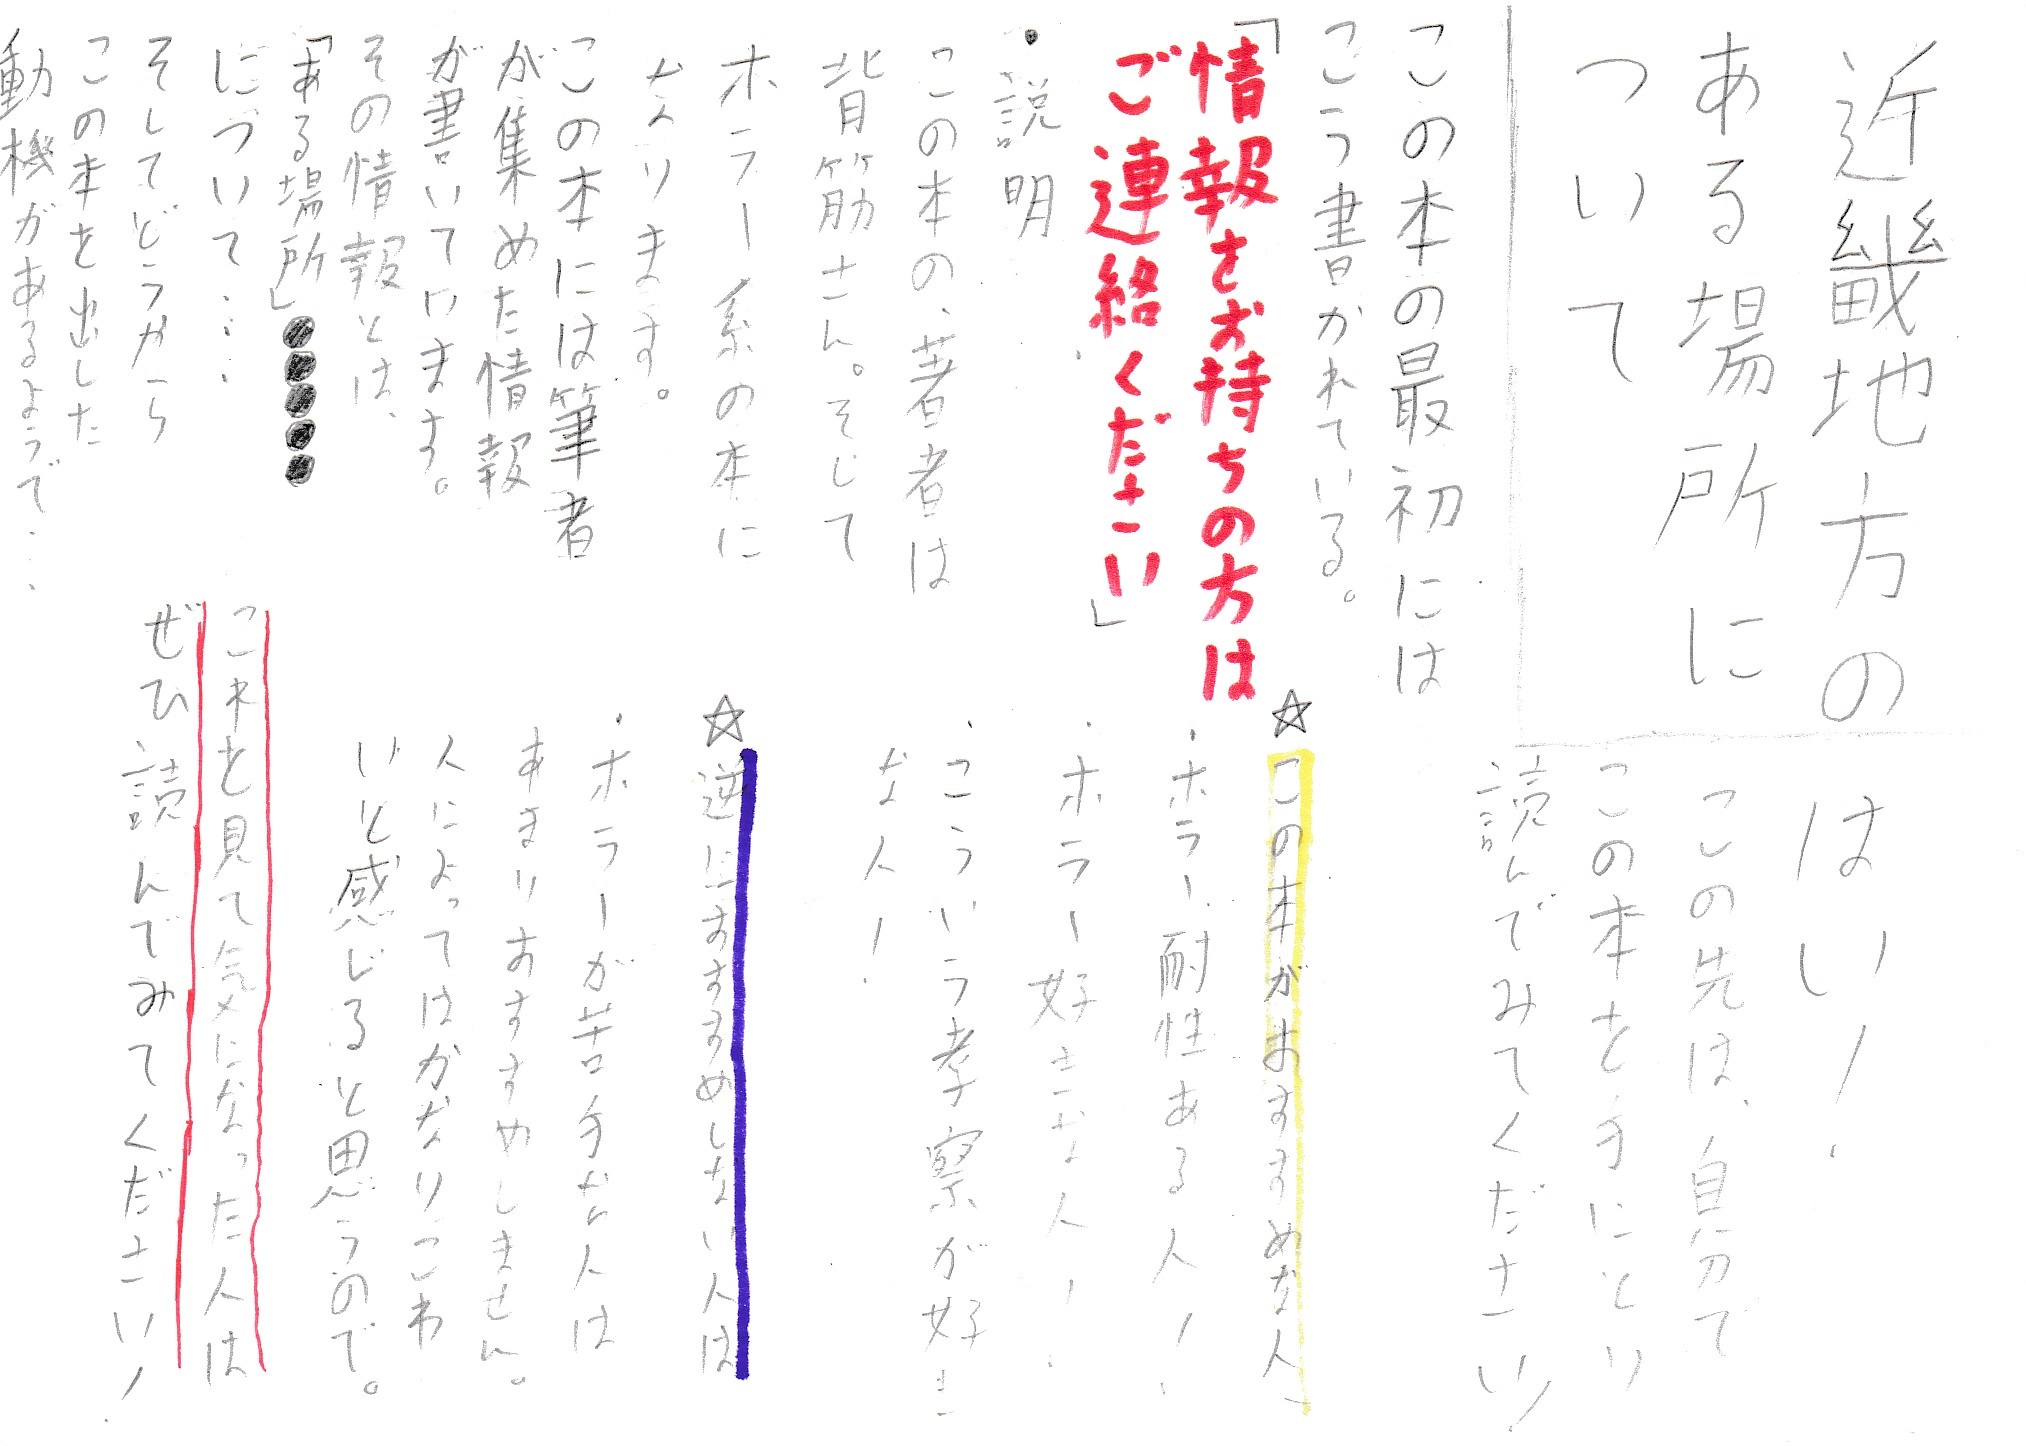 近畿地方の
ある場所に
ついて
この本の最初には
こう書かれている。
「情報をお持ちの方は
ご連絡ください」
・説明
この本の、著者は
背筋さん。そして
ホラー系の本に
なります。
この本には筆者
が集めた情報
が書いています。
その情報とは、
「ある場所」●●●●●
について…
そしてどうやら
この本を出した
動機があるようで…
はい!
この先は、自分で
この本を手にとり
読んでみてください!
☆この本がおすすめな人
・ホラー耐性ある人!
・ホラー好きな人!
・こういう考察が好き
な人!
☆逆におすすめしない人は
・ホラーが苦手な人は
あまりおすすめしません。
人によってはかなりこわ
いと感じると思うので。
これを見て気になった人は
ぜひ読んでみてください!